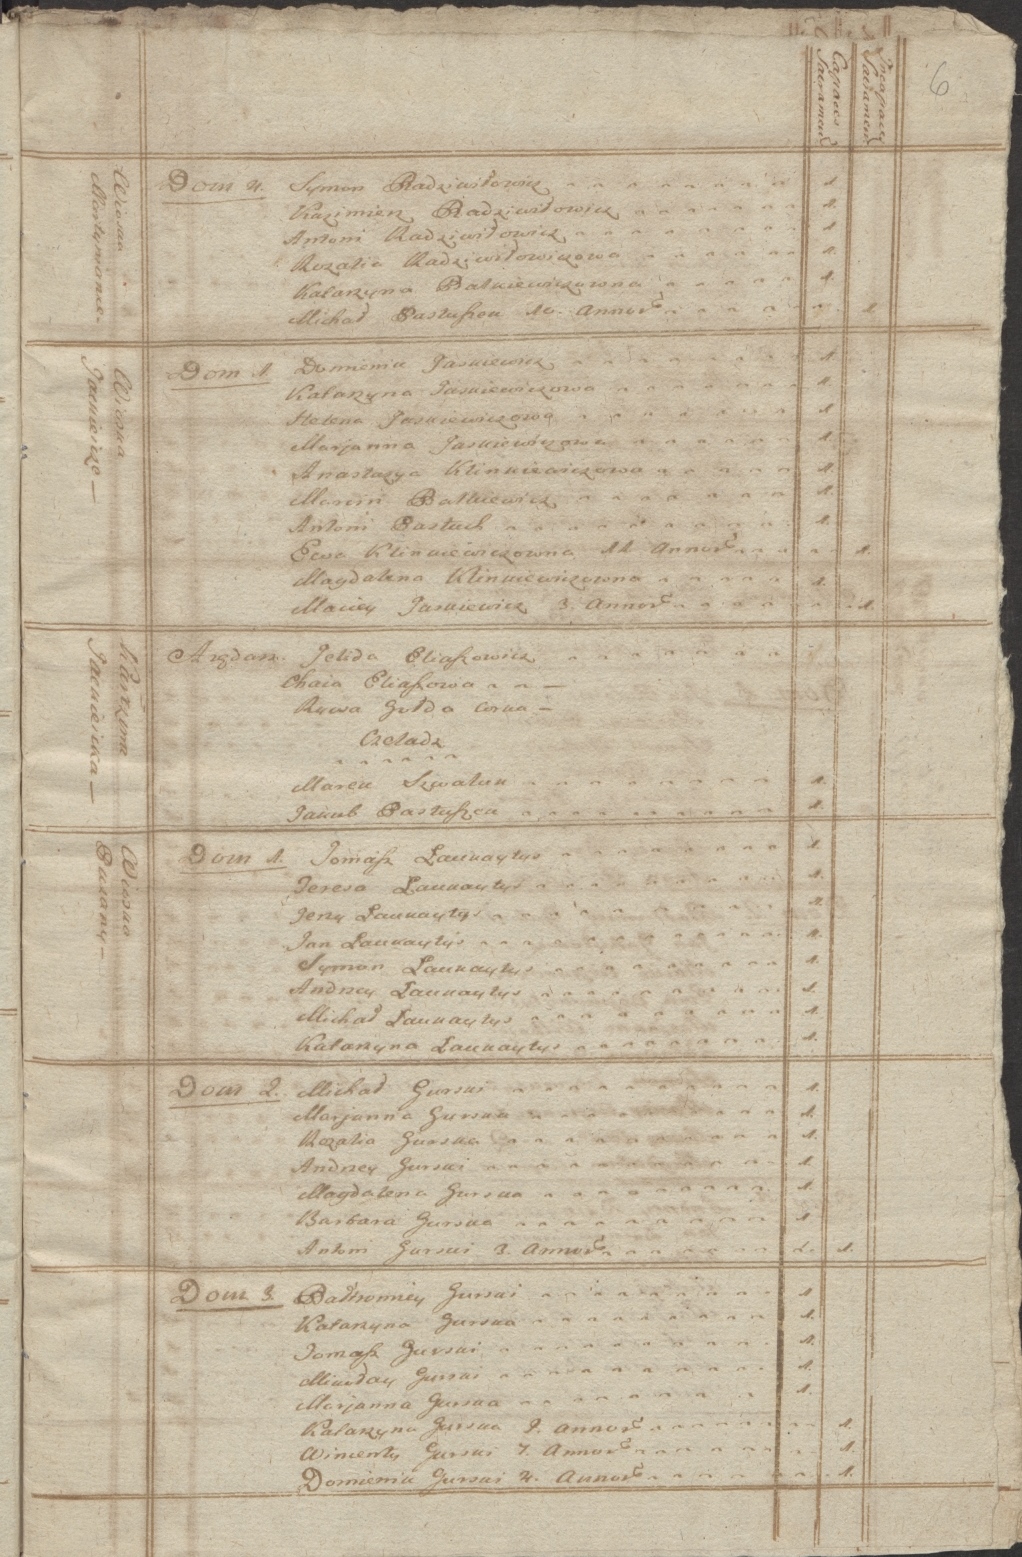 6
Capaces Sacrament
Incapaces Sacrament
Wioska Martyniance
Dom 4. Symon Radziwiłowicz 1.
Kazimierz Radziwiłowicz 1.
Antoni Radziwiłowicz 1
Rozalia Radziwiłowiczowa 1.
Katarzyna Batkiewiczowna 1.
Michał Pastuszek 10. Annor 1
Wioska
Dom 1 Dominik Jaskiewicz 1.
Katarzyna Jaskiewiczowa 1.
Helena Jaskiewiczowa 1
Marjanna Jaskiewiczowa 1.
Anastazya Klimkiewiczowa 1.
Marcin Batkiewicz 1.
Antoni Pastuch 1.
Ewa Klimkiewiczowna 11 Annor 1.
Magdalena Klimkiewiczowna 1.
Maciey Jaskiewicz 3. Annor 1.
Karczma
Arędarz. Eliaszowicz
Chaia Eliaszowa
Golda corka
Czeladz
Marek Szwalun 1.
Jakub Pastuszek 1.
Wioska Pukany
Dom 1. Tomasz Laukaytys 1.
Teresa Laukaytys 1.
Jerzy Laukaytys 1.
Jan Laukaytys 1.
Symon Laukaytys 1.
Andrzey Laukaytys 1.
Michał Laukaytys 1.
Katarzyna Laukaytys 1.
Dom 2. Michał Gurski 1.
Marjanna Gurska 1.
Rozalia Gurska 1.
Andrzey Gurski 1.
Magdalena Gurska 1.
Barbara Gurska 1
Antoni Gurski 3. Annor 1.
Dom 3. Bałtromiey Gurski 1
Katarzyna Gurska 1.
Tomasz Gurski 1.
Mikołay Gurski 1.
Marjanna Gurska 1.
Katarzyna Gurska 9. annor 1.
Wincenty Gurski 7. Annor 1.
Dominik Gurski 4. Annor 1.